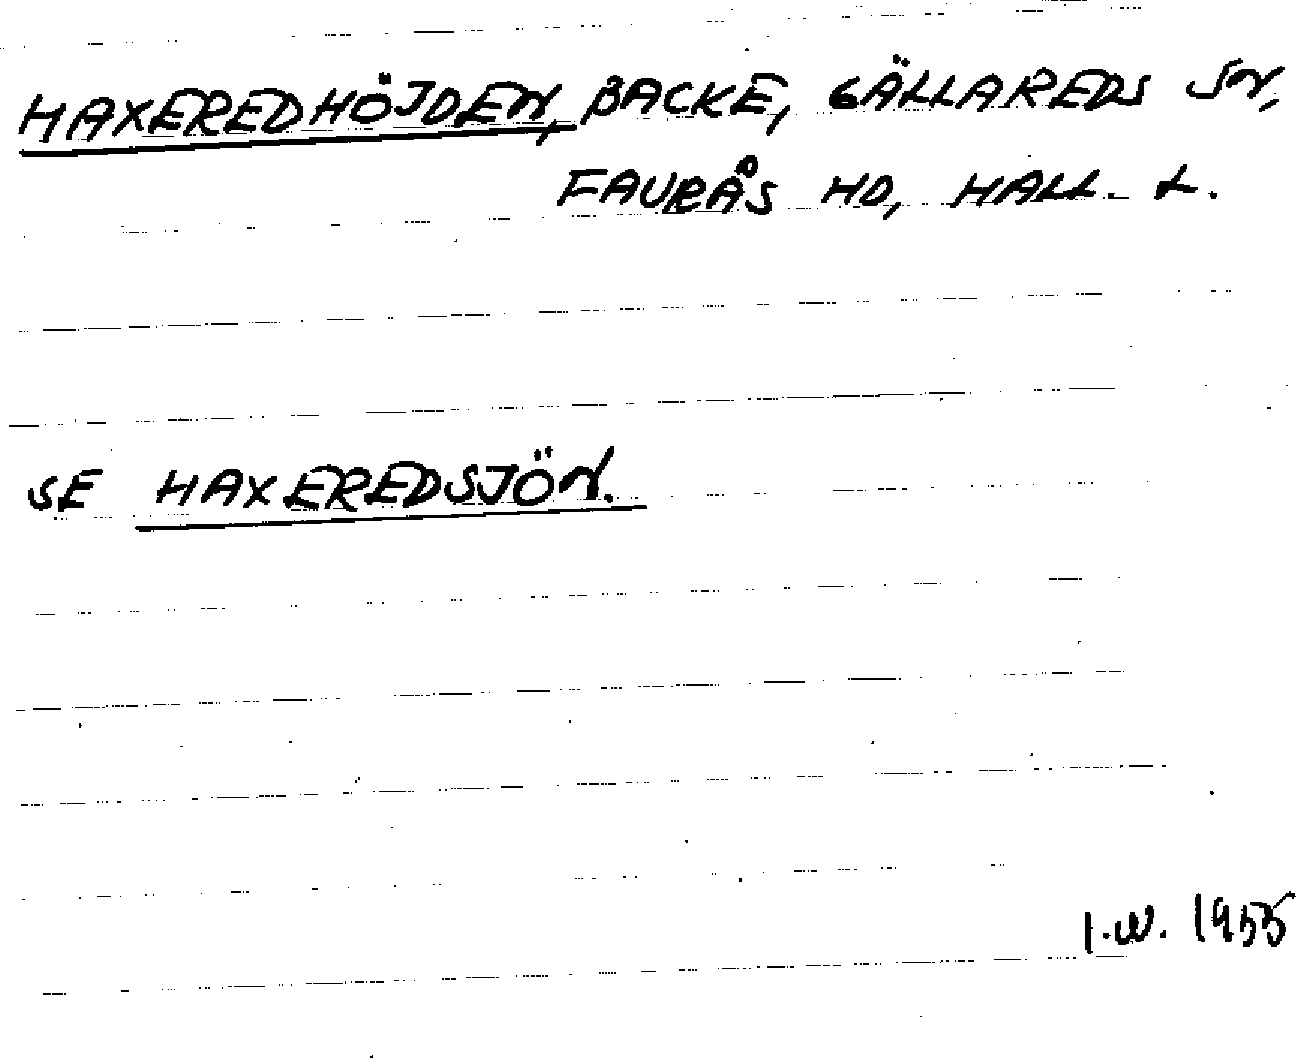 HAXEREDHÖJDEN, BACKE, GÄLLAREDS SN,
FAURÅS HD, HALL. L.
SE HAXEREDSJÖN.
I.W. 1955